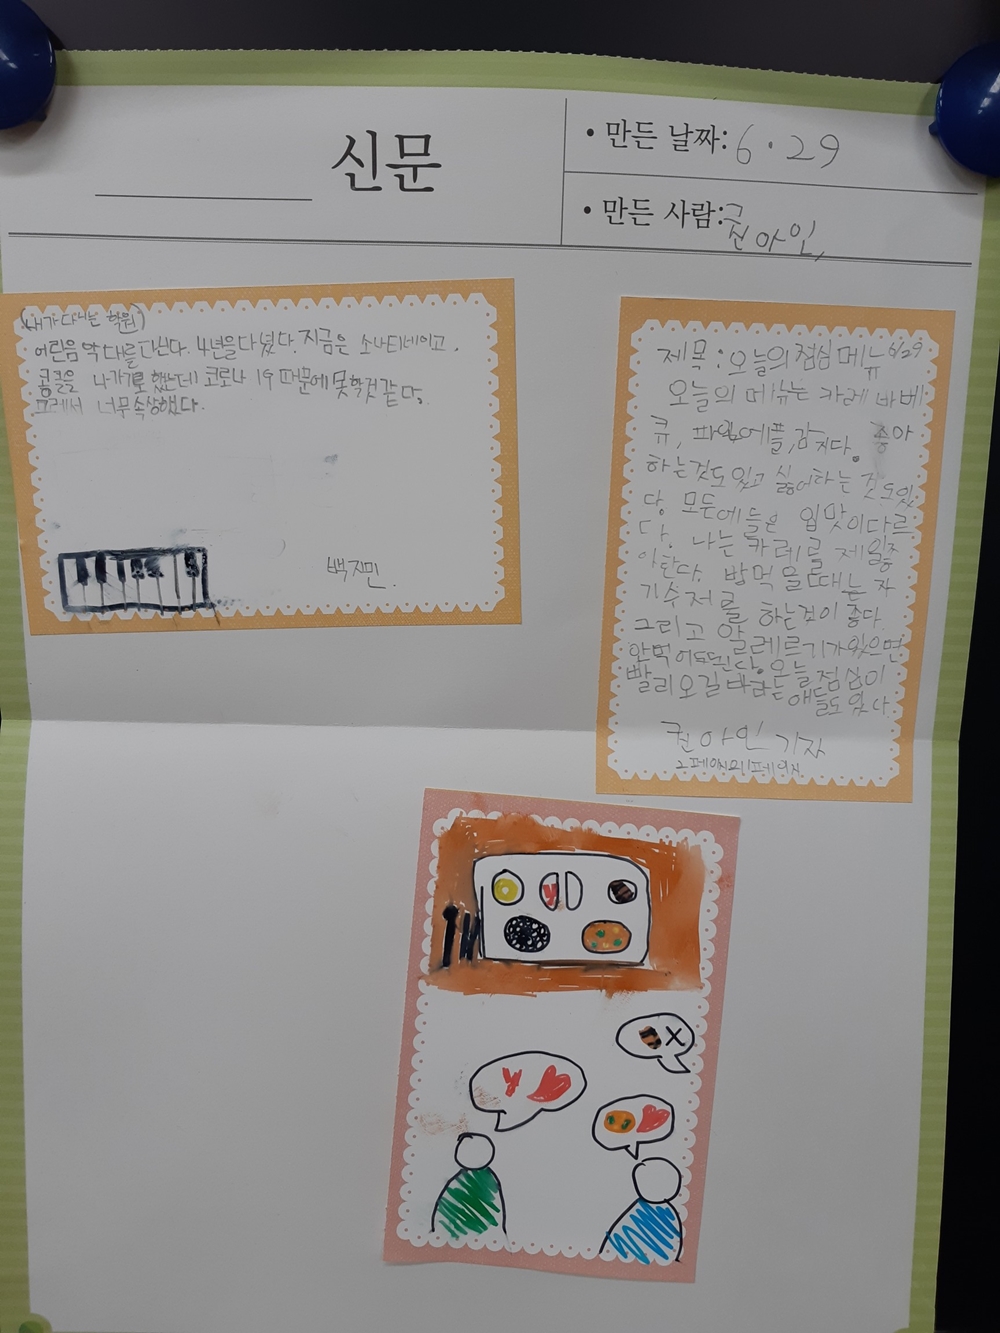 신문
• 만든 날짜: 6·29
• 만든 사람: 권아인
(내가 다니는 학원)
어린음악대를 다닌다. 4년을 다녔다. 지금은 소나티네이고,
콩쿨을 나가기로 했는데 코로나 19 때문에 못할것 같다.
그래서 너무 속상했다.
백지민
제목: 오늘의 점심 메뉴 6/29
오늘의 메뉴는 카레 바베
큐, 파인에플, 감자다. 좋아
하는것도 있고 싫어하는 것도있
다. 모두에들은 입맛이다르
다. 나는 카레를 제일좋
아한다. 밥먹을때는 자
기수저를 하는것이 좋다.
그리고 알레르기가있으면
안먹어도된다. 오늘점심이
빨리오길 바라는 애들도 있다.
권아인 기자
X